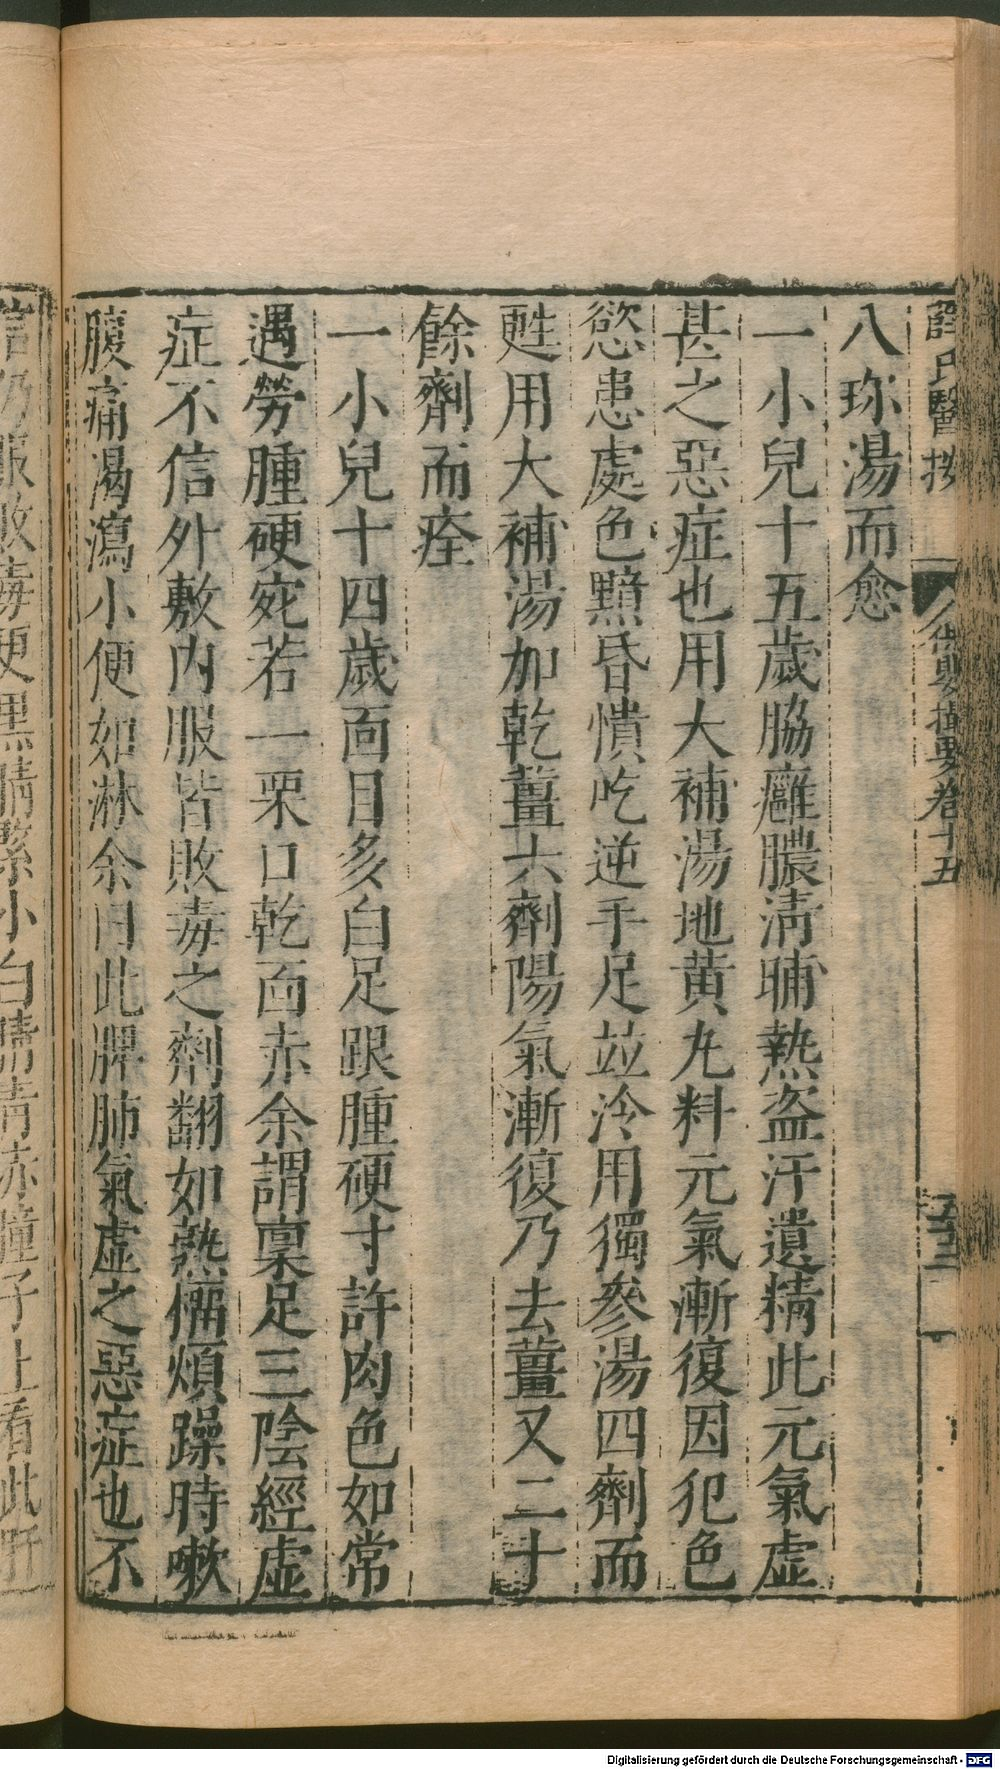 薛氏醫按 保嬰撮要卷十五 五十三
八珎湯而愈
一小兒十五歲脇癰膿淸晡熱盗汗遺精此元氣虛
甚之惡症也用大補湯地黄丸料元氣漸復因犯色
慾患處色黯昏憒吃逆手足並冷用獨參湯四劑而
甦用大補湯加乾薑六劑陽氣漸復乃去薑又二十
餘劑而痊
一小兒十四歲面目多白足跟腫硬寸許肉色如常
遇勞腫硬宛若一栗口乾面赤余謂稟足三陰經虛
症不信外敷内服皆敗毒之劑翻如熱㿈煩躁時嗽
腹痛渴瀉小便如淋余曰此脾肺氣虛之惡症也不
信仍服敗毒更黑睛緊小白睛青赤瞳子上看此肝
Digitalisierung gefördert durch die Deutsche Forschungsgemeinschaft - DFG